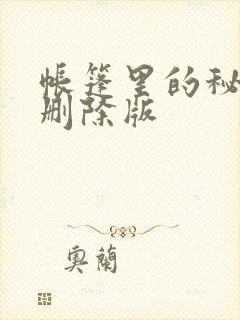 帐篷里的秘
删除版
奥蘭